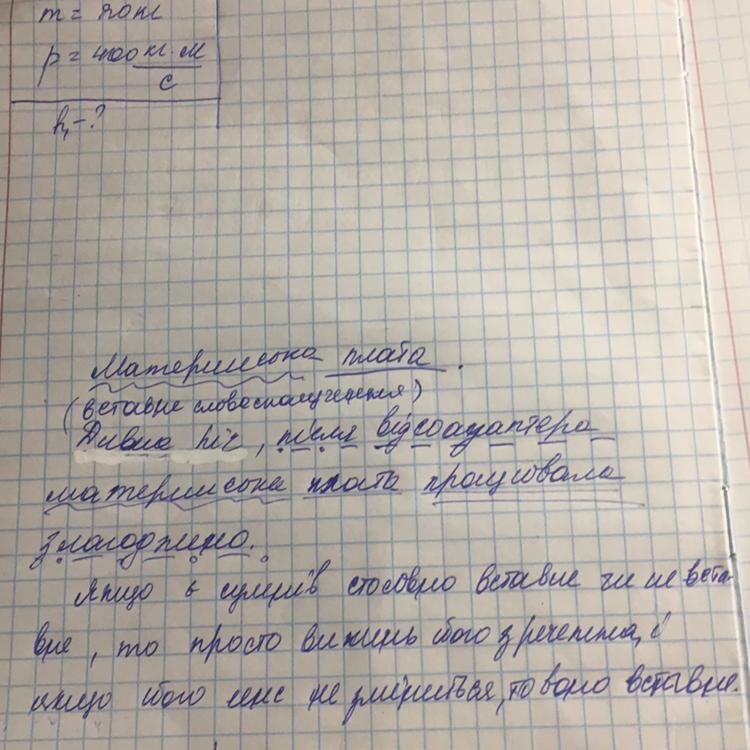 m = 80кг
p = 400 кг·м
с
h₁ - ?
Материнська плата.
(вставне словосполучення)
Дивна річ, після відеоадаптера
материнська плата працювала
злагоджено.
Якщо є сумнів стосовно вставне чи не вста-
вне, то просто викинь його з речення, і
якщо його сенс не зміниться, то воно вставне.